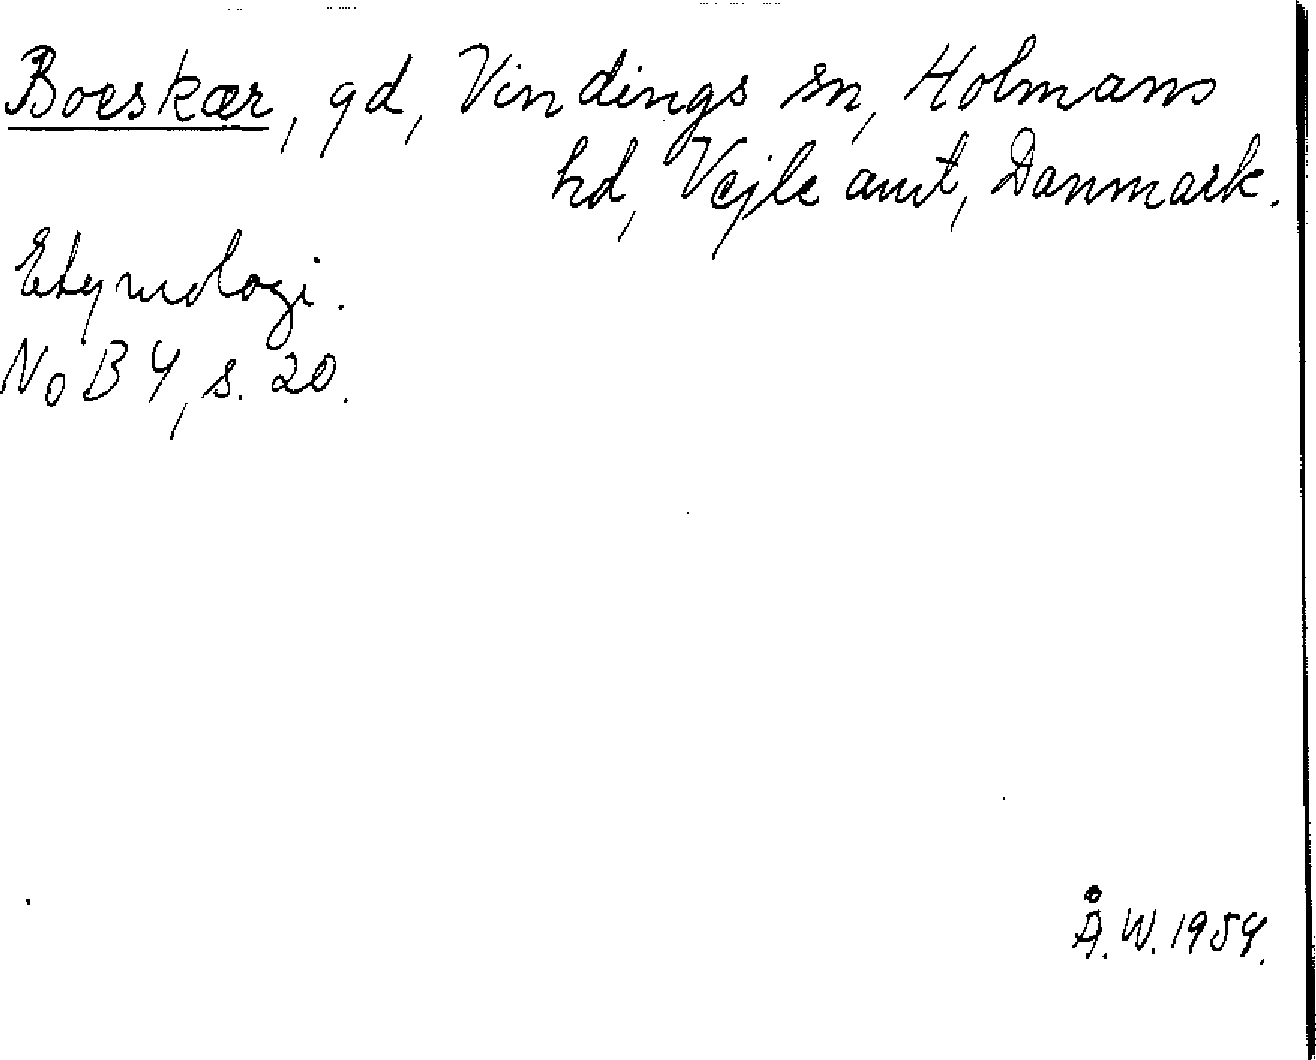 Boeskær, gd, Vindings sn, Holmans
hd, Vejle amt, Danmark.
Etymologi.
NoB 4, s. 20.
Å. W. 1954.